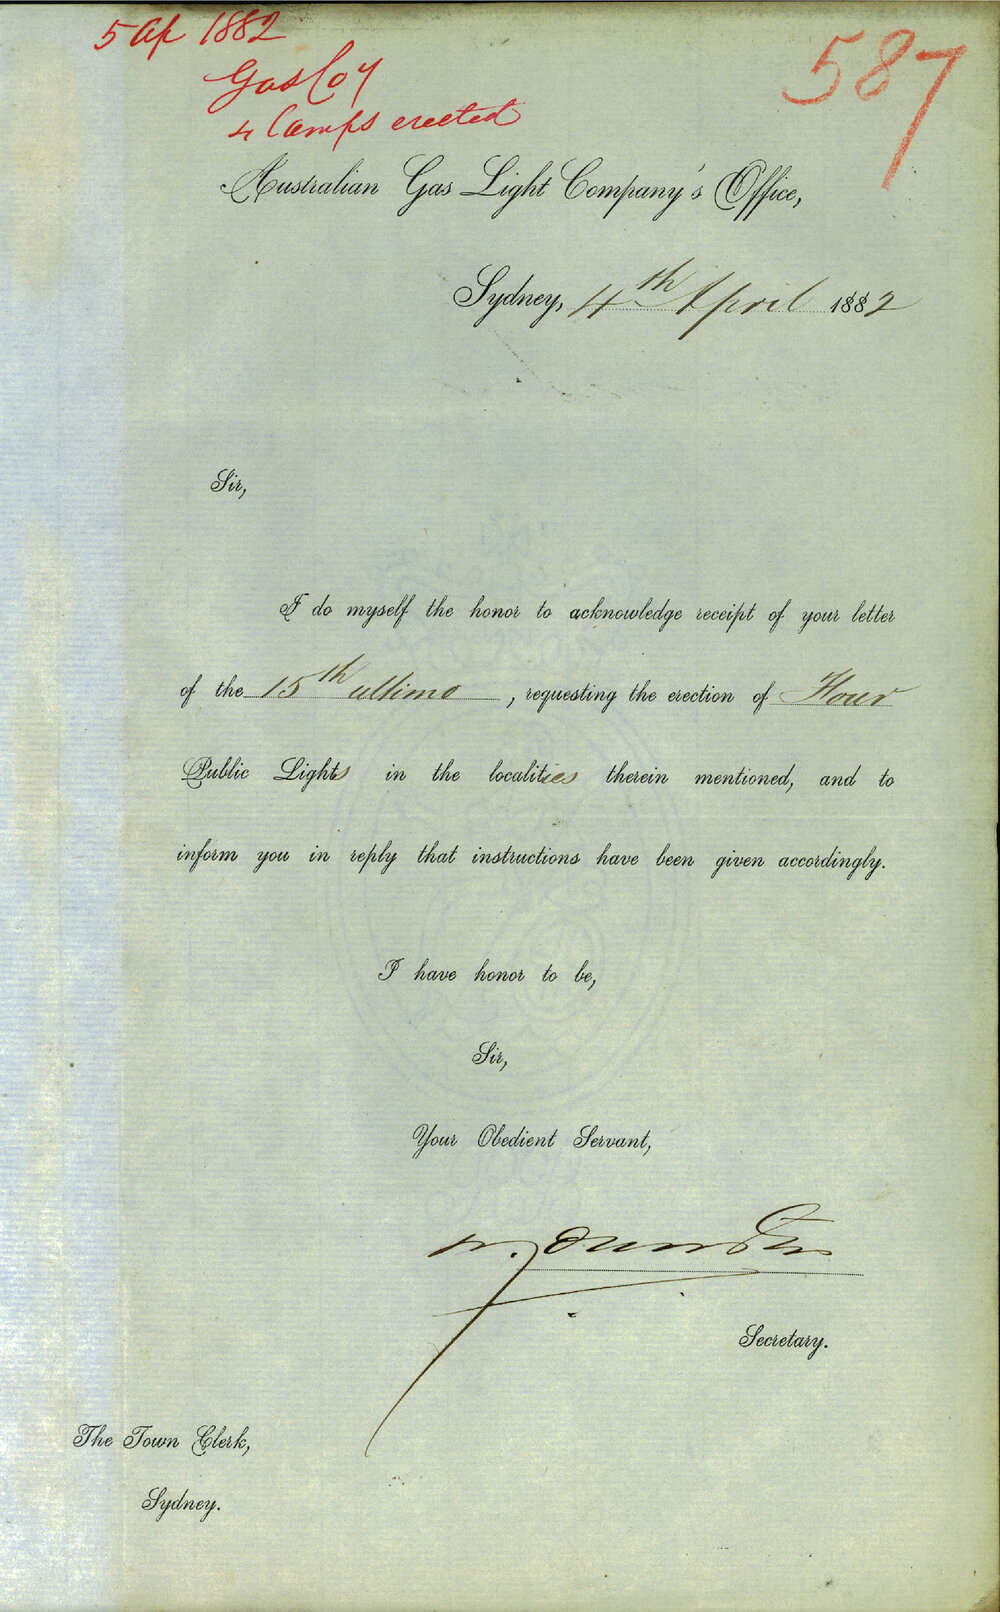 5 Ap 1882
587
Gas Coy
4 lamps erected
Australian Gas Light Company's Office,
Sydney, 4th April 1882
Sir,
I do myself the honor to acknowledge receipt of your letter
of the 15th ultimo, requesting the erection of Four
Public Lights in the localities therein mentioned, and to
inform you in reply that instructions have been given accordingly.
I have honor to be,
Sir,
Your Obedient Servant,
Secretary.
The Town Clerk,
Sydney.